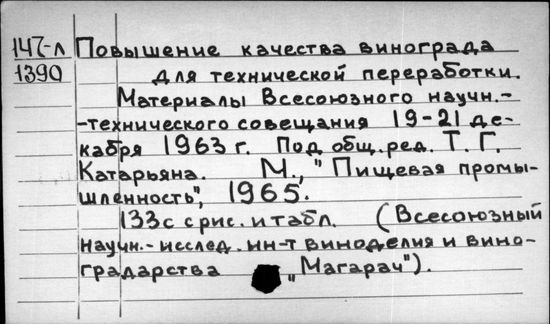 147-л Повышение качества винограда
1390 для технической переработки.
Материалы Всесоюзного научн.-
-технического совещания 19-21 де-
кабря 1963 г. Под общ. ред. Т. Г.
Катарьяна. М., "Пищевая промы-
шленность", 1965.
133 с с рис. и табл. (Всесоюзный
научн.-исслед. ин-т виноделия и вино-
градарства „Магарач").